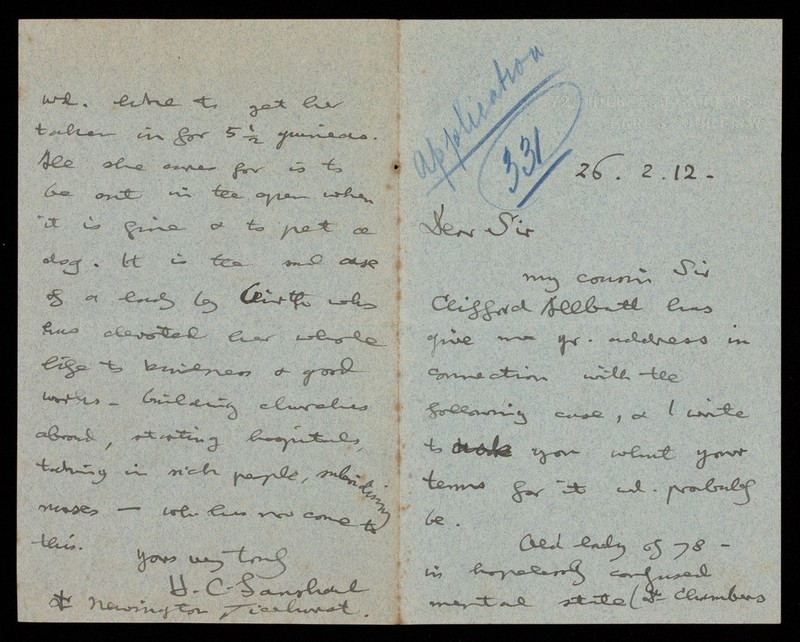 application
331
26. 2. 12 -
Dear Sir
my cousin Sir
Clifford Allbutt has
give me yr. address in
connection with the
following case, & I write
to ask you what your
terms for it wd. probably
be.
Old lady of 78 -
in hopelessly confused
mental state (Dr Chambers
wd. like to get her
taken in for 5 1/2 guineas.
All she cares for is to
be out in the open when
it is fine & to pet a
dog. It is the sad case
of a lady by birth who
has devoted her whole
life to kindness & good
works - building churches
abroad, starting hospitals,
taking in sick people, subsidising
nurses - who has now come to
this.
Yours very truly
H. C.
Newington, Ticehurst.